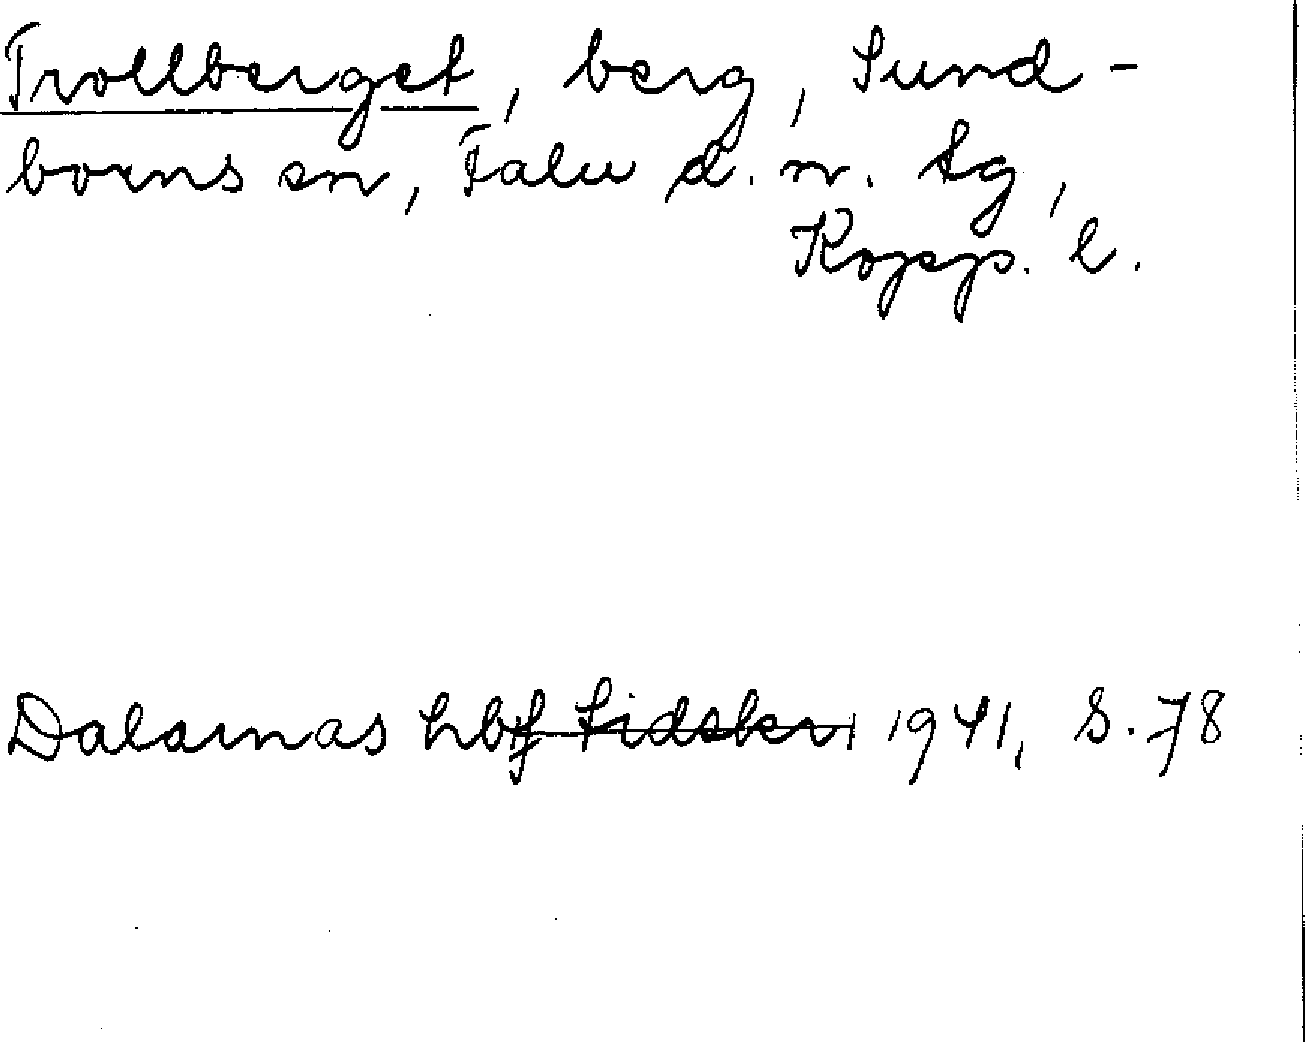 Trollberget, berg, Sund-
borns sn, Falu d. n. tg,
Kopp. l.
Dalarnas hbf tidskr 1941, S. 78